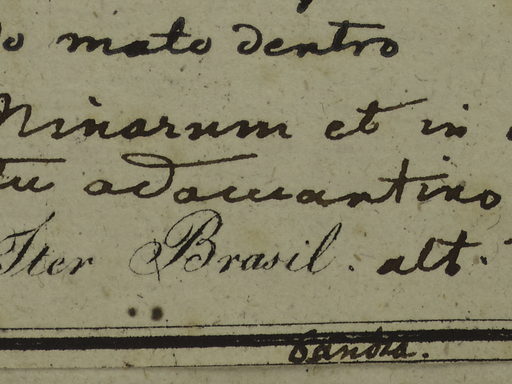 do mato dentro
Minarum et in
tu adamantino
Iter Brasil. alt.